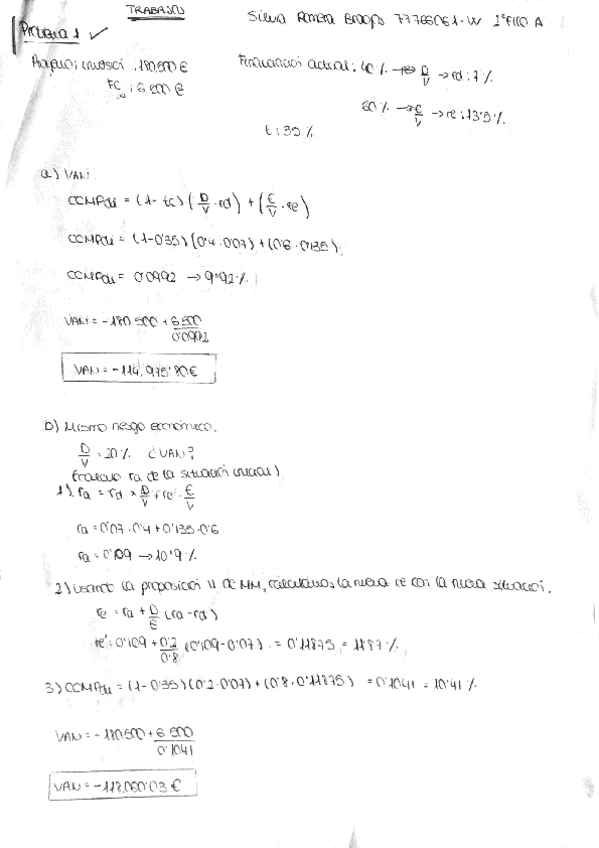 TRABAJOS
Silvia Romera Braojos 77766061-W 1º FICO A
Prueba 1 ✓
180.500 €
FC : 6.500 €
Financiación actual: 40 % → D/V → rd: 7 %
60 % → E/V → re: 13'5 %
t: 35 %
a) VAN:
CCMPdi = (1 - tc) (D/V · rd) + (E/V · re)
CCMPdi = (1-0'35) (0'4 · 0'07) + (0'6 · 0'135)
CCMPdi = 0'0992 → 9'92 %
VAN = -180 500 + 6 500/0'0992
VAN = -114.975'80 €
b) Mismo riesgo económico.
D/V = 20 % ¿VAN?
ra de la situación inicial)
1) ra = rd × D/V + re · E/V
ra = 0'07 · 0'4 + 0'135 · 0'6
ra = 0'109 → 10'9 %
2) Usando la proposición II de MM, calculamos la nueva re con la nueva situación.
re = ra + D/E (ra - rd)
re' = 0'109 + 0'2/0'8 (0'109 - 0'07) = 0'11875 = 11'87 %
3) CCMPdi = (1 - 0'35) (0'2 · 0'07) + (0'8 · 0'11875) = 0'1041 = 10'41 %
VAN = -180 500 + 6 500/0'1041
VAN = -118.060'03 €